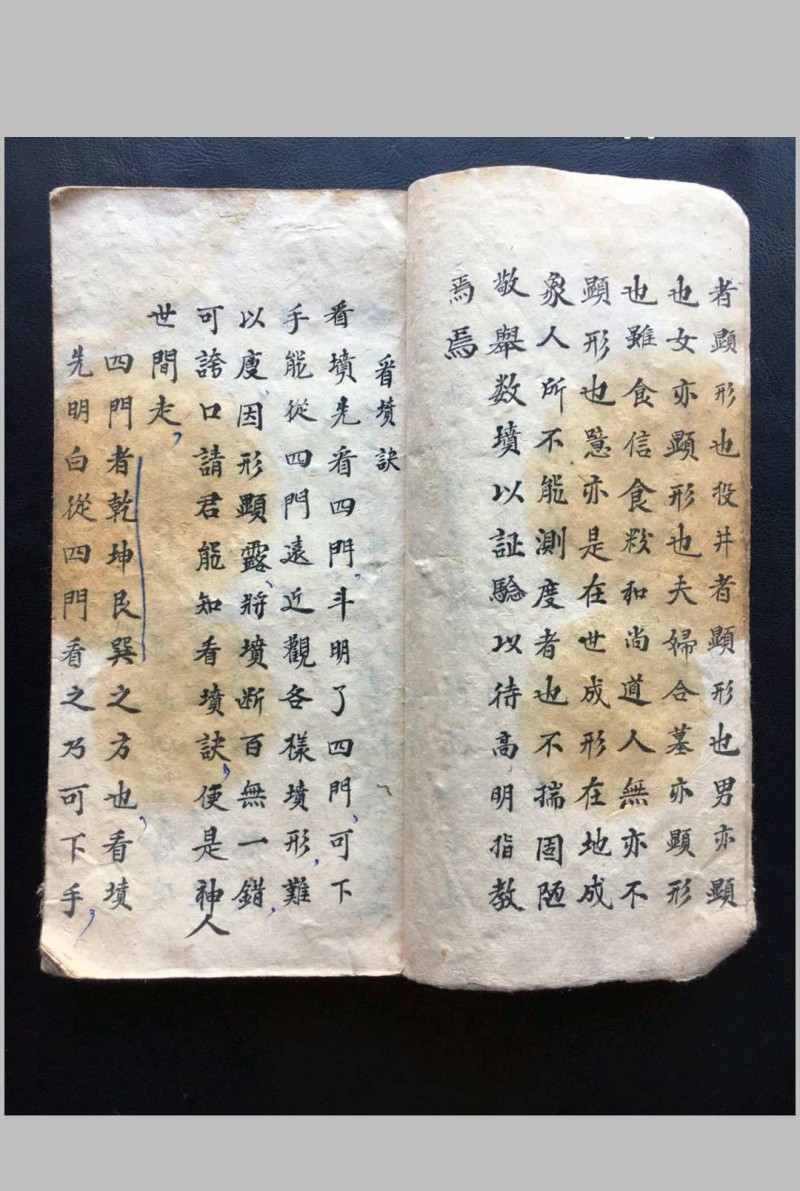 者顕形也投井者顕形也男亦顕
也女亦顕形也夫婦合墓亦顕形
也雖食信食粆和尚道人無亦不
顕形也噫亦是在世成形在地成
象人所不能測度者也不揣固陋
敬舉数墳以証驗以待高明指教
焉焉
看墳訣
看墳先看四門斗明了四門可下
手能從四門遠近觀各樣墳形難
以度因形顕露將墳断百無一錯
可誇口請君能知看墳訣便是神人
世間走
四門者乾坤艮巽之方也看墳
先明白從四門看之乃可下手